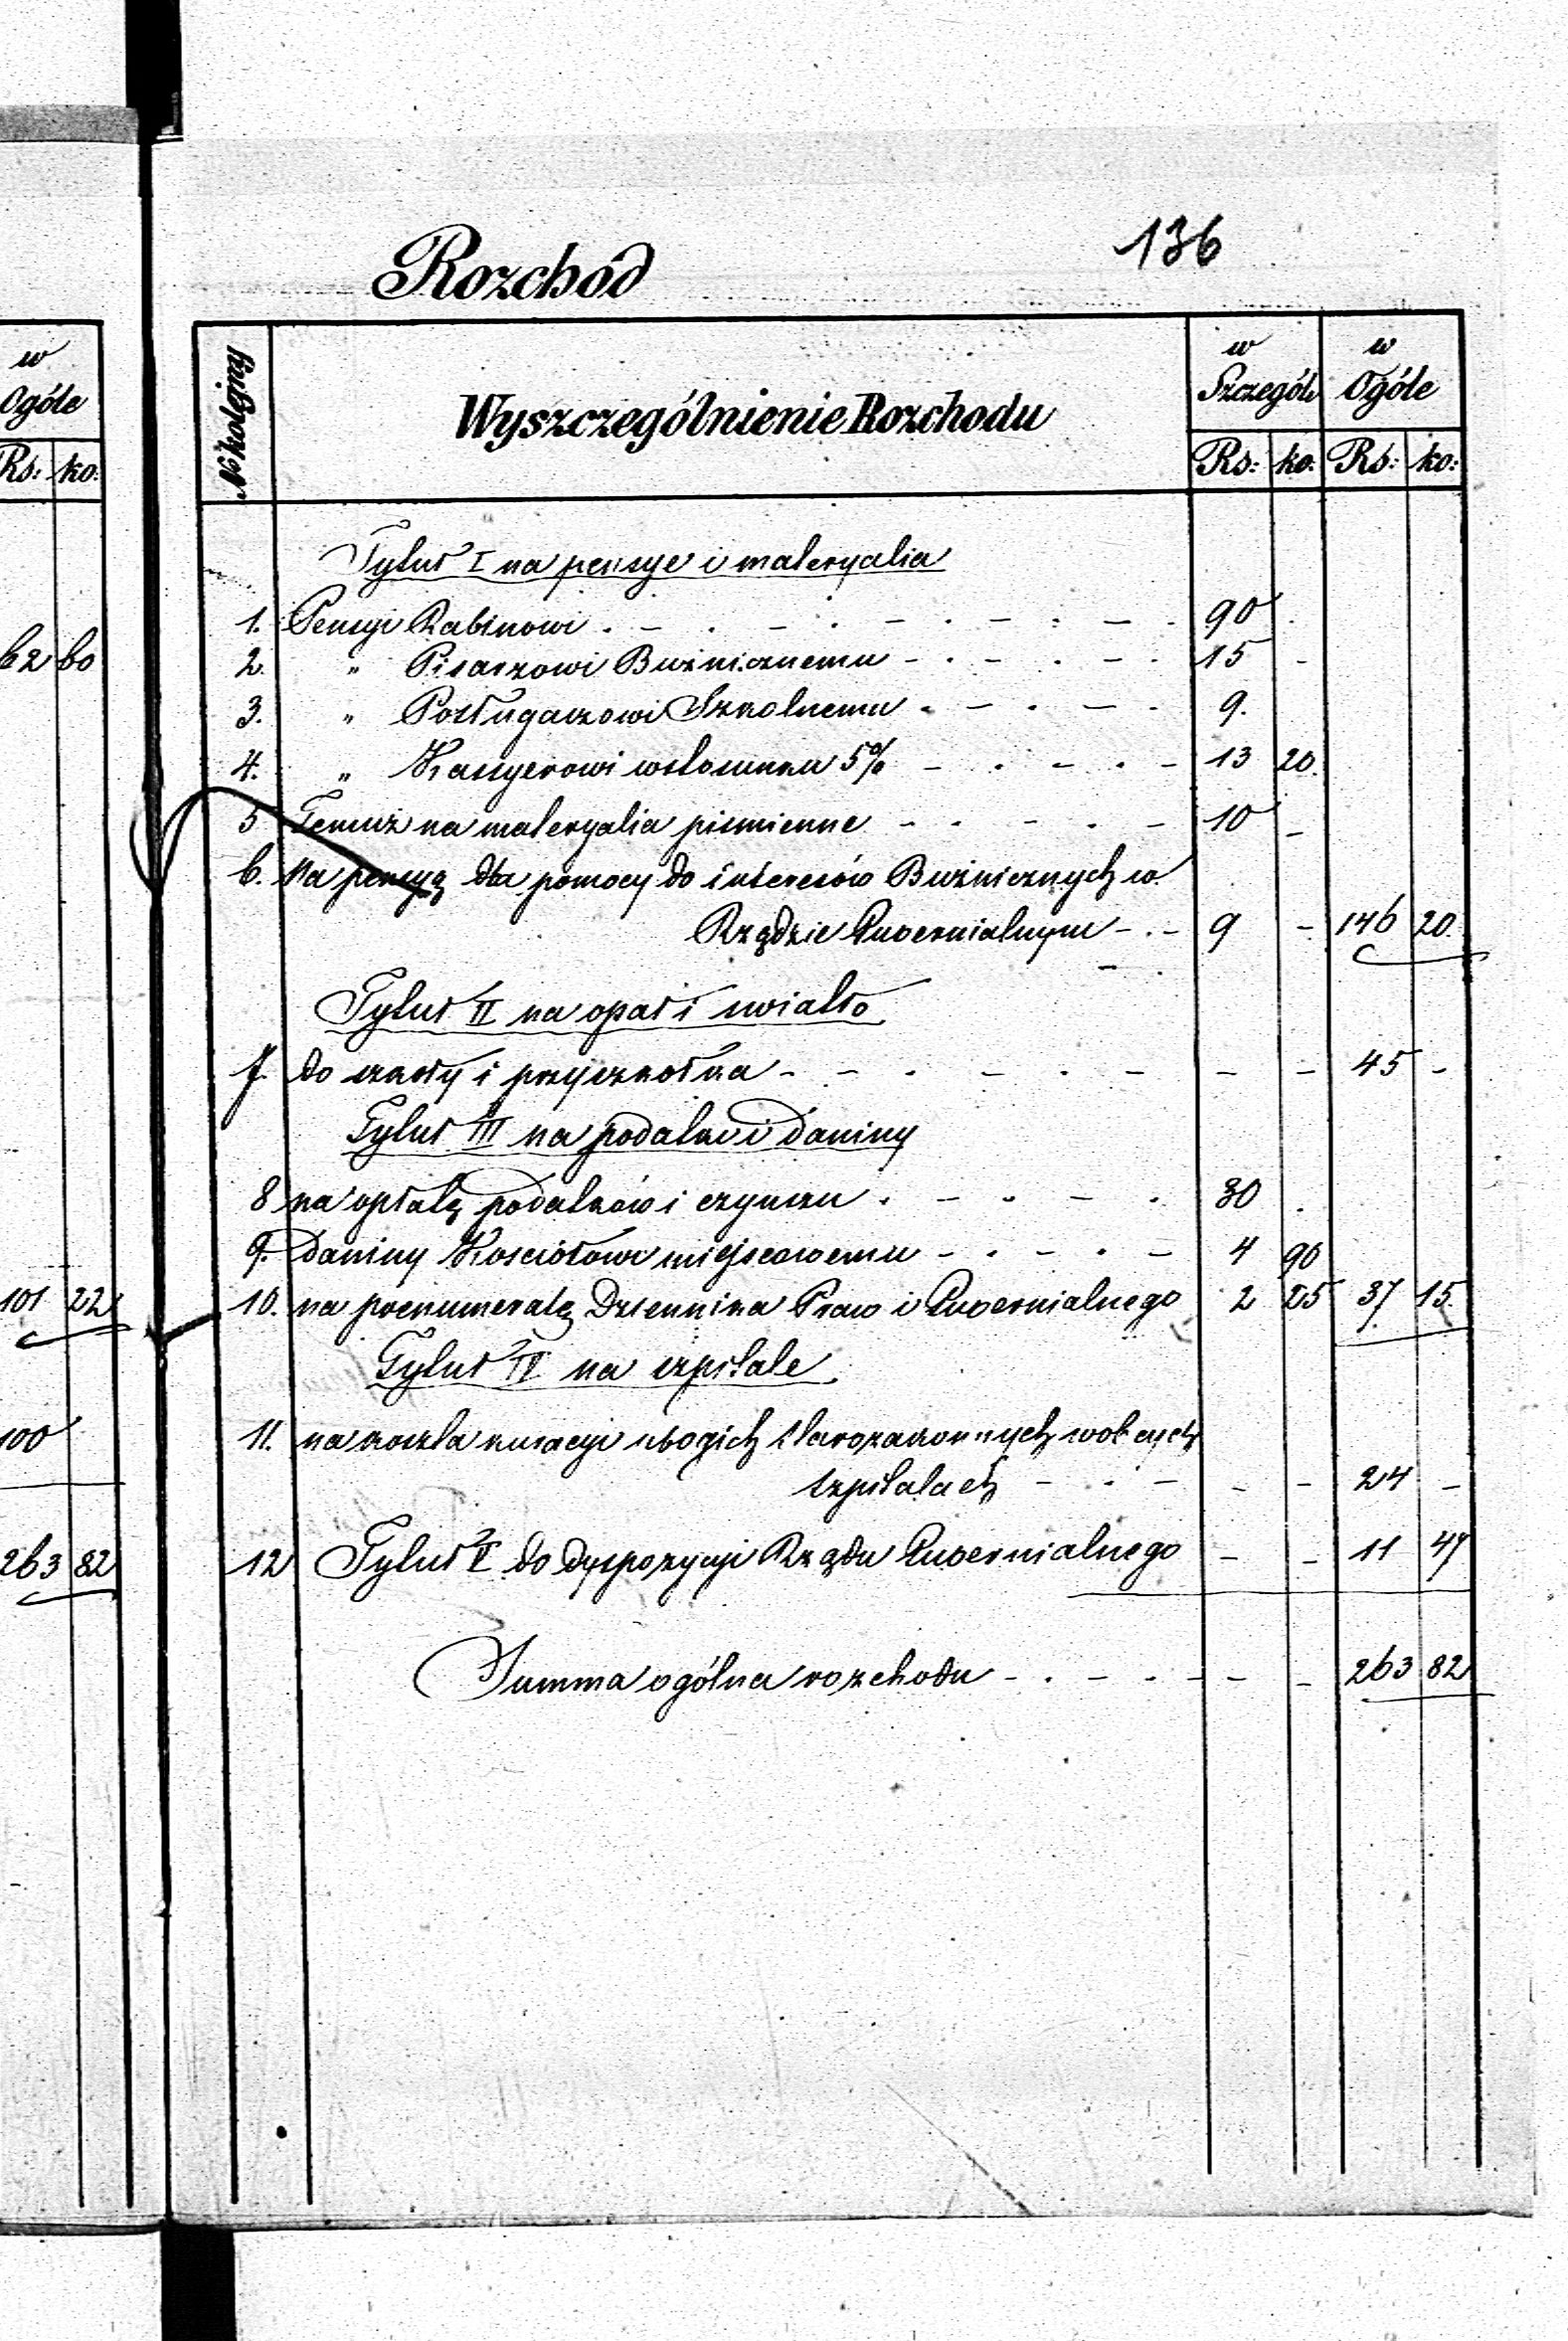 136
Rozchód
w
Ogóle
Rs: ko:
62 60
101 22
100
263 82
№ kolejny
Wyszczególnienie Rozchodu
w Szczegól:
w Ogóle
Rs: ko: Rs: ko:
Tytuł I na pensye i materyalia
1. Pensyi Rabinowi . - . - . - . - . - . 90 .
2. " Pisarzowi Bużnicznemu - . - . - . 15 -
3. " Posługaczowi Szkolnemu . - . - . 9.
4. " Kassyerowi wstosunku 5% - . - . - 13 20.
5 Temuż na materyalia piśmienne - . - . - 10 -
6. Na pensyą dla pomocy do interesów Bużnicznych w
Rządzie Gubernialnym - . - 9 - 146 20.
Tytuł II na opał i światło
7. do szkoły i przyszkołka - - . - . - - - 45 -
Tytuł III na podatki i daniny
8 na opłatę podatków i czynszu . - . - . 30 .
9. daniny Kościołowi miejscowemu - . - . - 4 90
10. na prenumeratę Dziennika Praw i Guberniálnego 2 25 37 15.
Tytuł IV na szpitale
11. na koszta kuracyi ubogich starozakonnych wobcych
szpitalach - . - - - 24 -
12 Tytuł V do dyspozycyi Rządu Gubernialnego - - 11 47
Summa ogólna rozchodu - . - . - - - 263 82